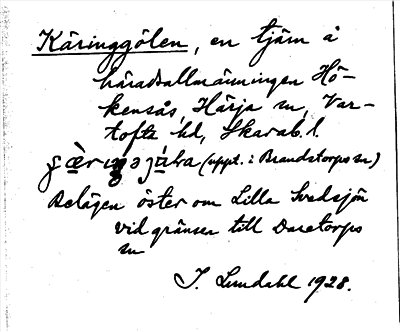 Käringgölen, en tjärn å
häradsallmänningen Hö-
kensås, Härja sn, Var-
tofta hd, Skarab. l.
(uppt. i Brandstorps sn)
Belägen öster om Lilla Svedsjön
vid gränsen till Daretorps
sn
J. Lundahl 1928.